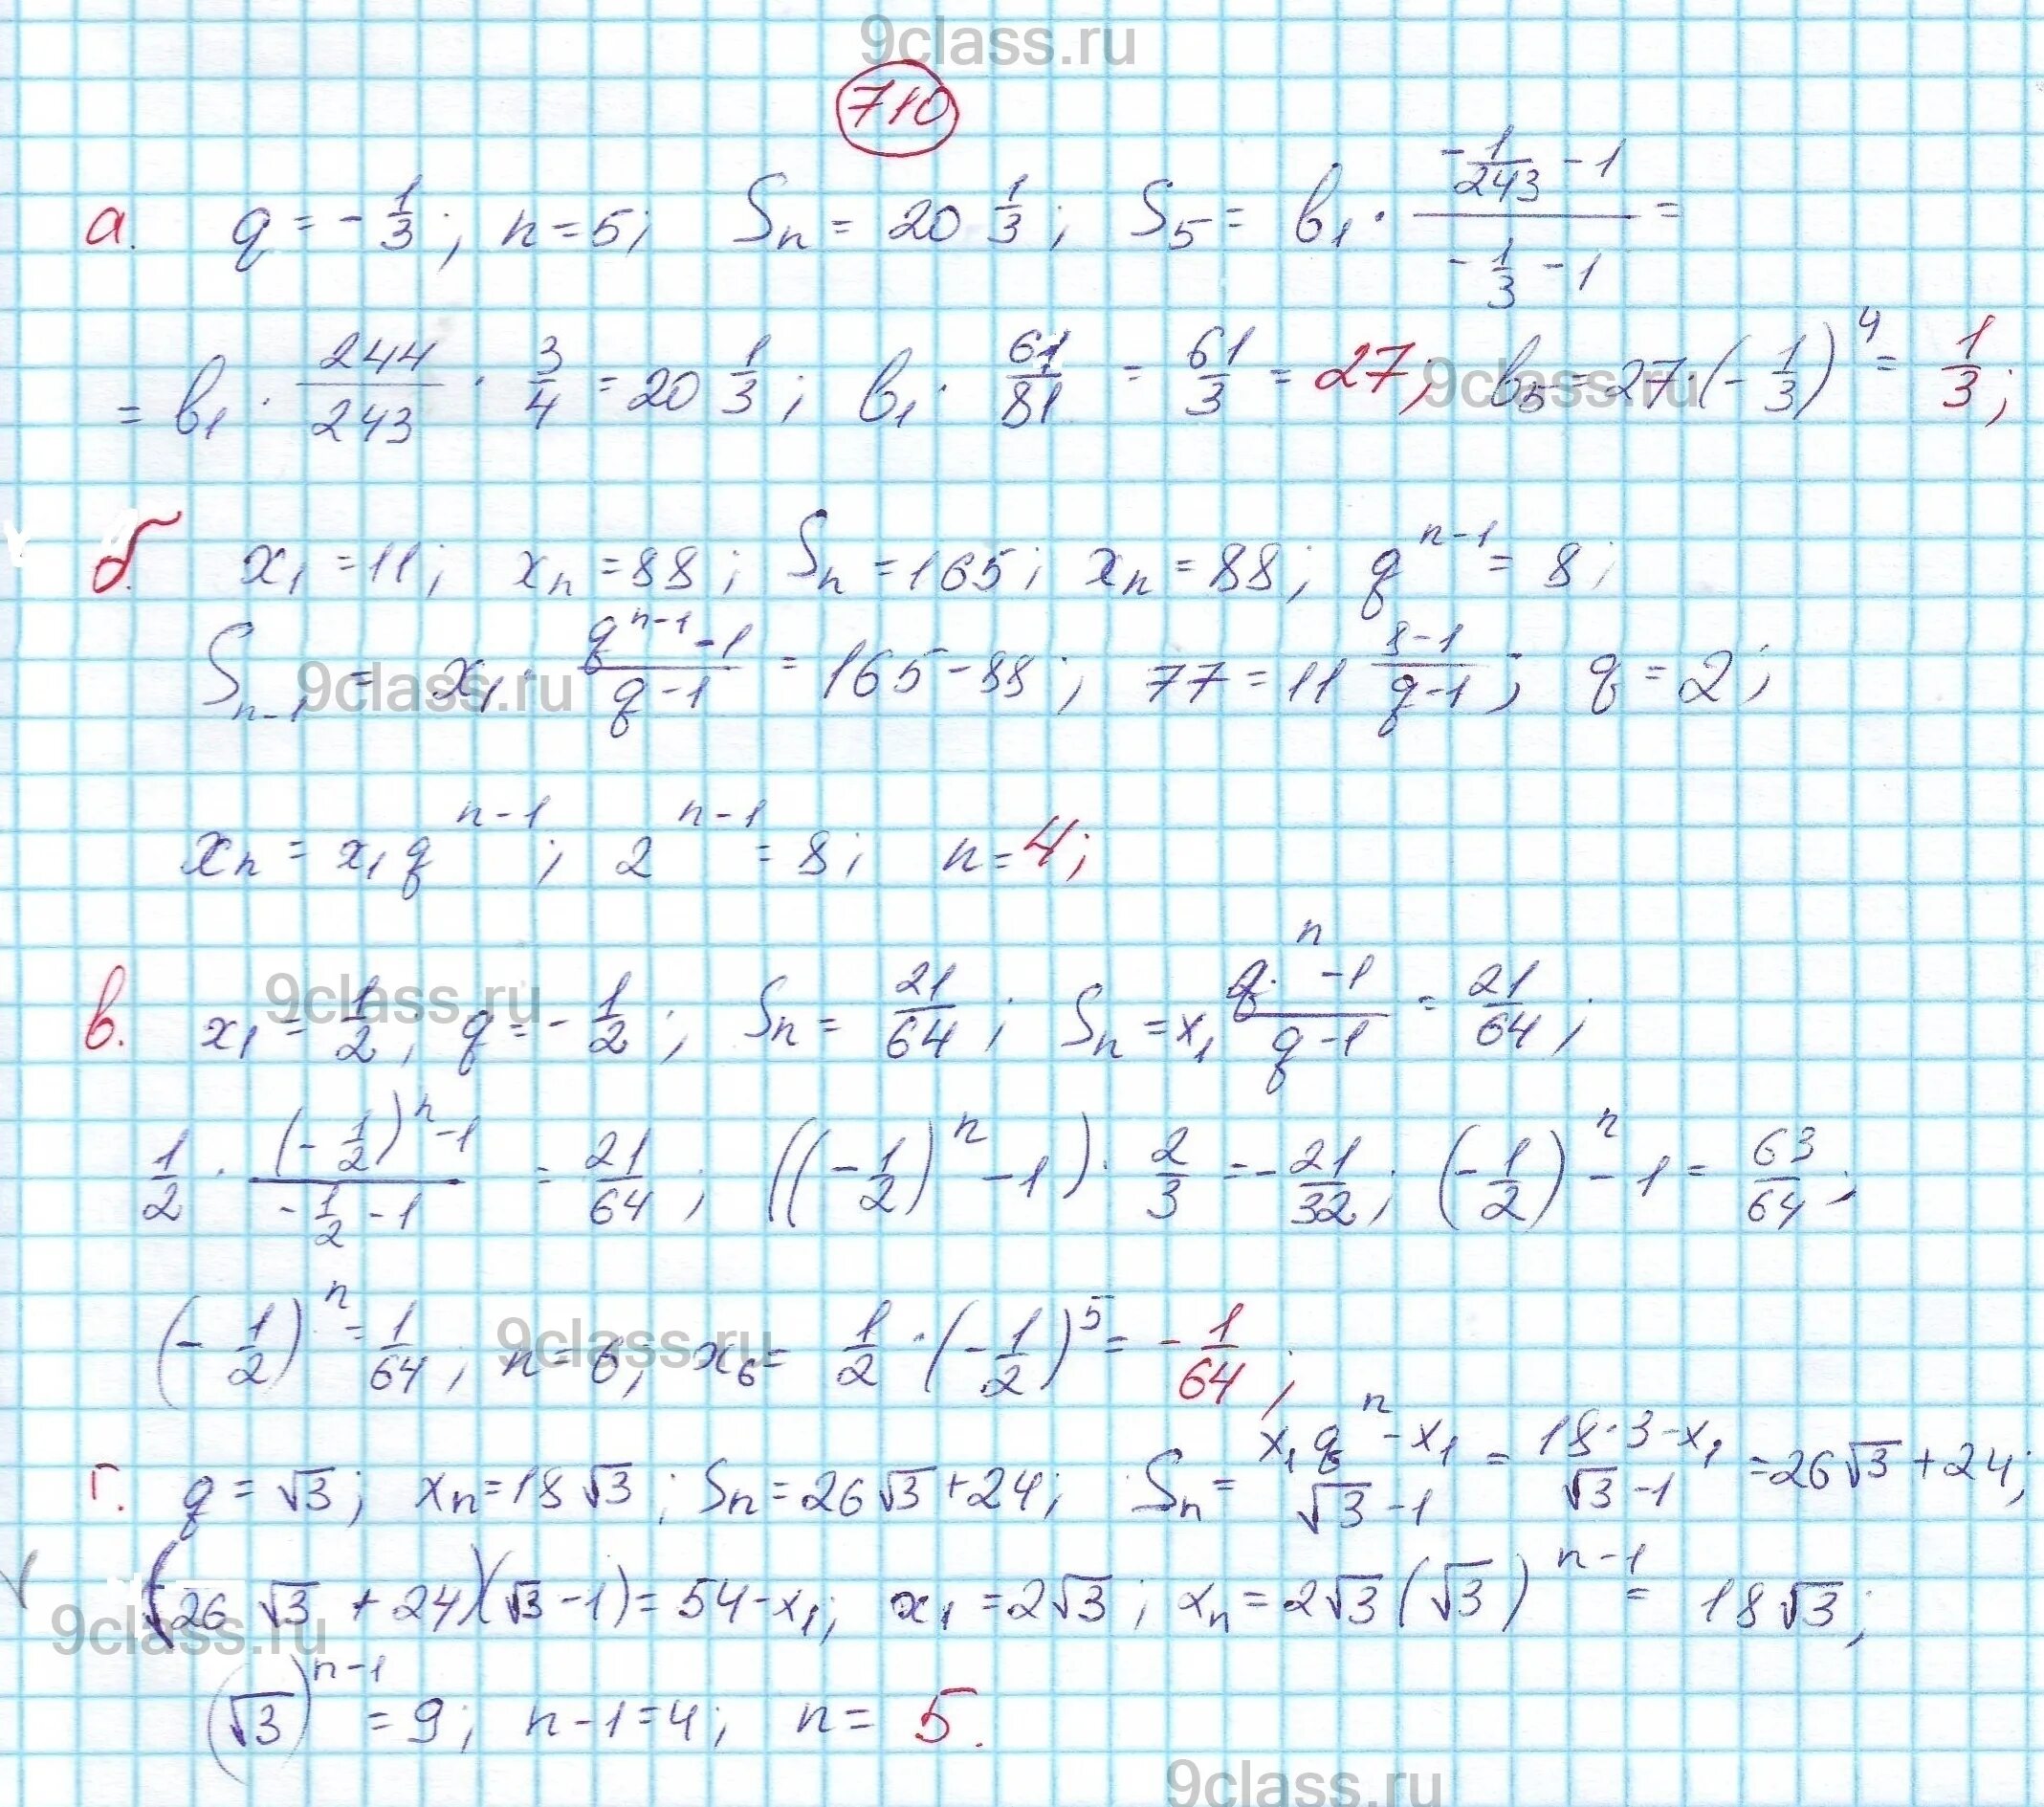 9class.ru
710
а. q = -1/3; n = 5; Sn = 20 1/3; S5 = b1 · (-1/243 - 1)/(-1/3 - 1) =
= b1 · 244/243 · 3/4 = 20 1/3; b1 · 61/81 = 61/3 = 27; b5 = 27·(-1/3)^4 = 1/3;
9class.ru
б. x1 = 11; xn = 88; Sn = 165; xn = 88; q^(n-1) = 8;
Sn-1 = x1 · (q^(n-1) - 1)/(q - 1) = 165 - 88; 77 = 11 (8-1)/(q-1); q = 2;
9class.ru
xn = x1 q^(n-1); 2^(n-1) = 8; n = 4;
в. x1 = 1/2; q = -1/2; Sn = 21/64; Sn = x1 (q^n - 1)/(q - 1) = 21/64;
9class.ru
9class.ru
1/2 · ((-1/2)^n - 1)/(-1/2 - 1) = 21/64; ((-1/2)^n - 1) · 2/3 = -21/32; (-1/2)^n - 1 = 63/64;
(-1/2)^n = 1/64; n = 6; x6 = 1/2 · (-1/2)^5 = -1/64;
9class.ru
г. q = √3; xn = 18√3; Sn = 26√3 + 24; Sn = (x1 q^n - x1)/(√3 - 1) = (18·3 - x1)/(√3 - 1) = 26√3 + 24;
(26√3 + 24)(√3 - 1) = 54 - x1; x1 = 2√3; xn = 2√3 (√3)^(n-1) = 18√3;
9class.ru
(√3)^(n-1) = 9; n - 1 = 4; n = 5.
9class.ru